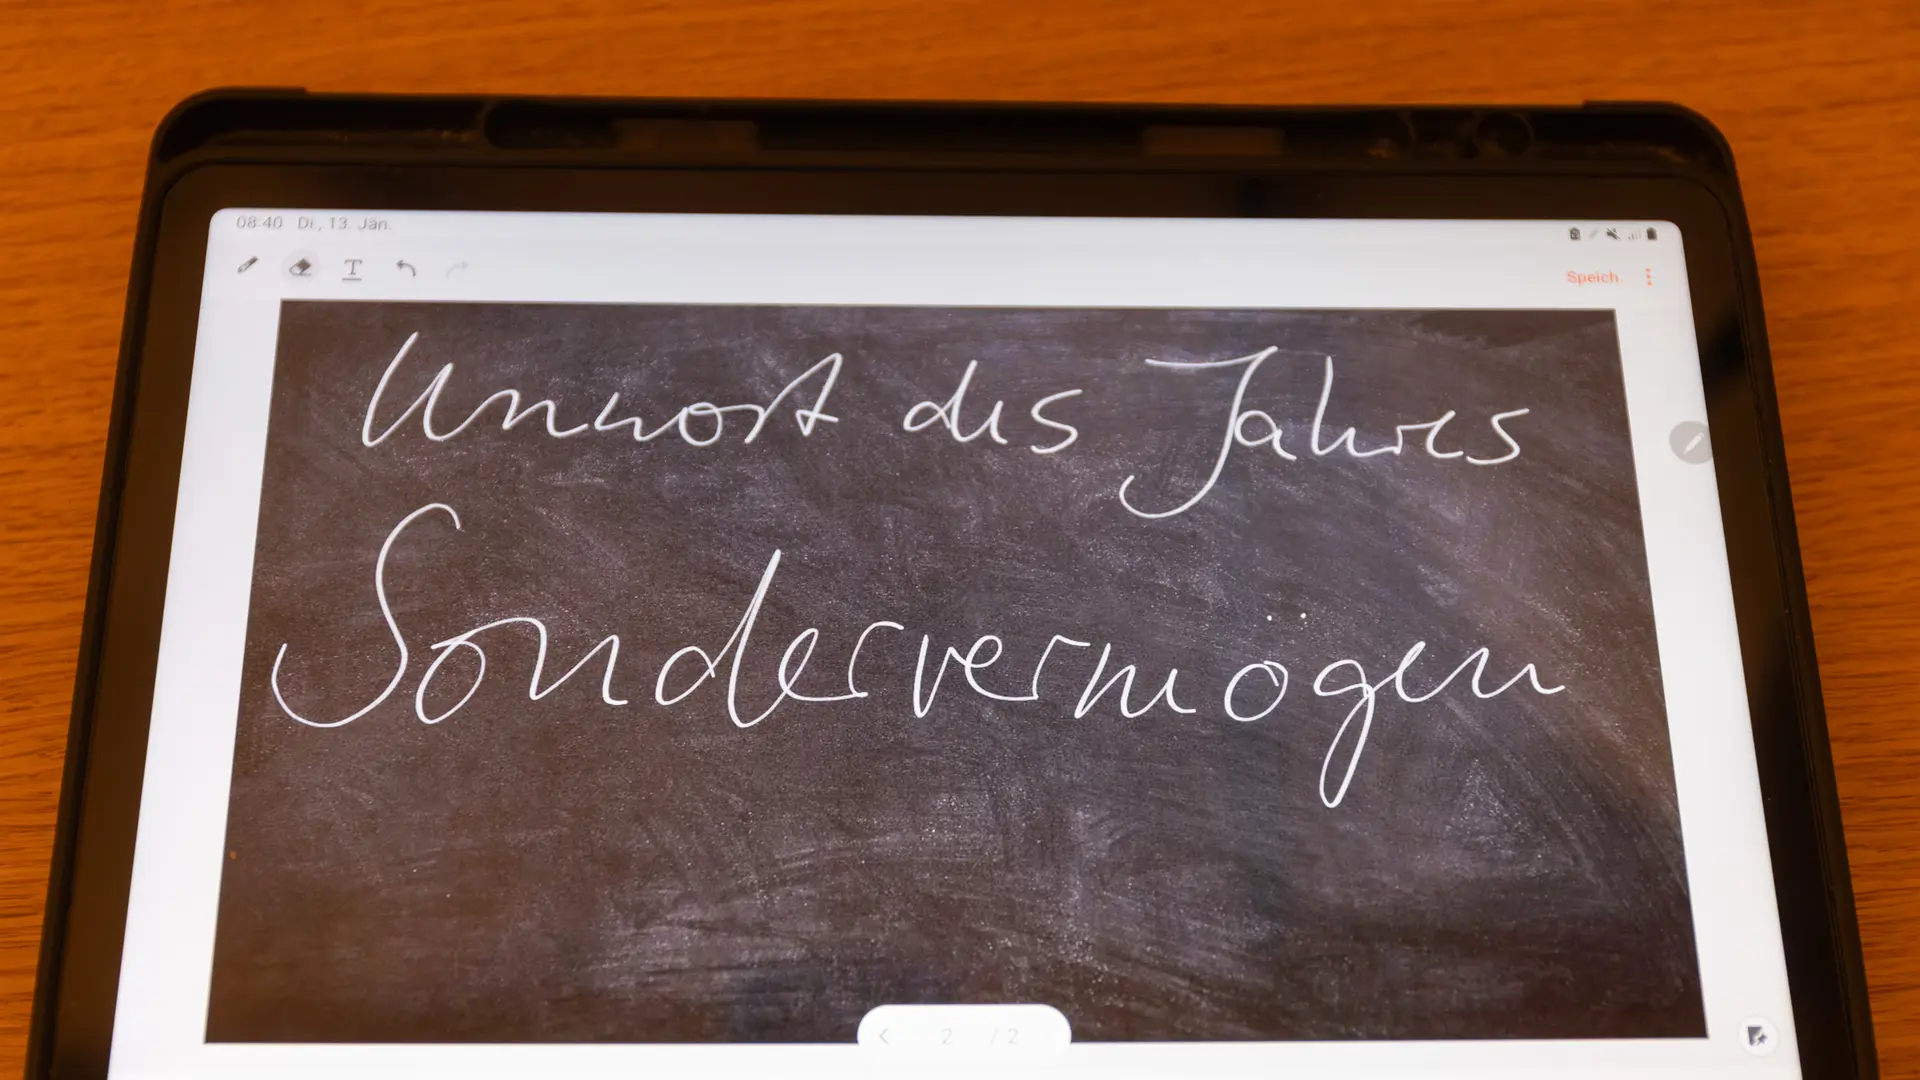 08:40 Di., 13. Jan.
Speich.
Unwort des Jahres
Sondervermögen
2 / 2